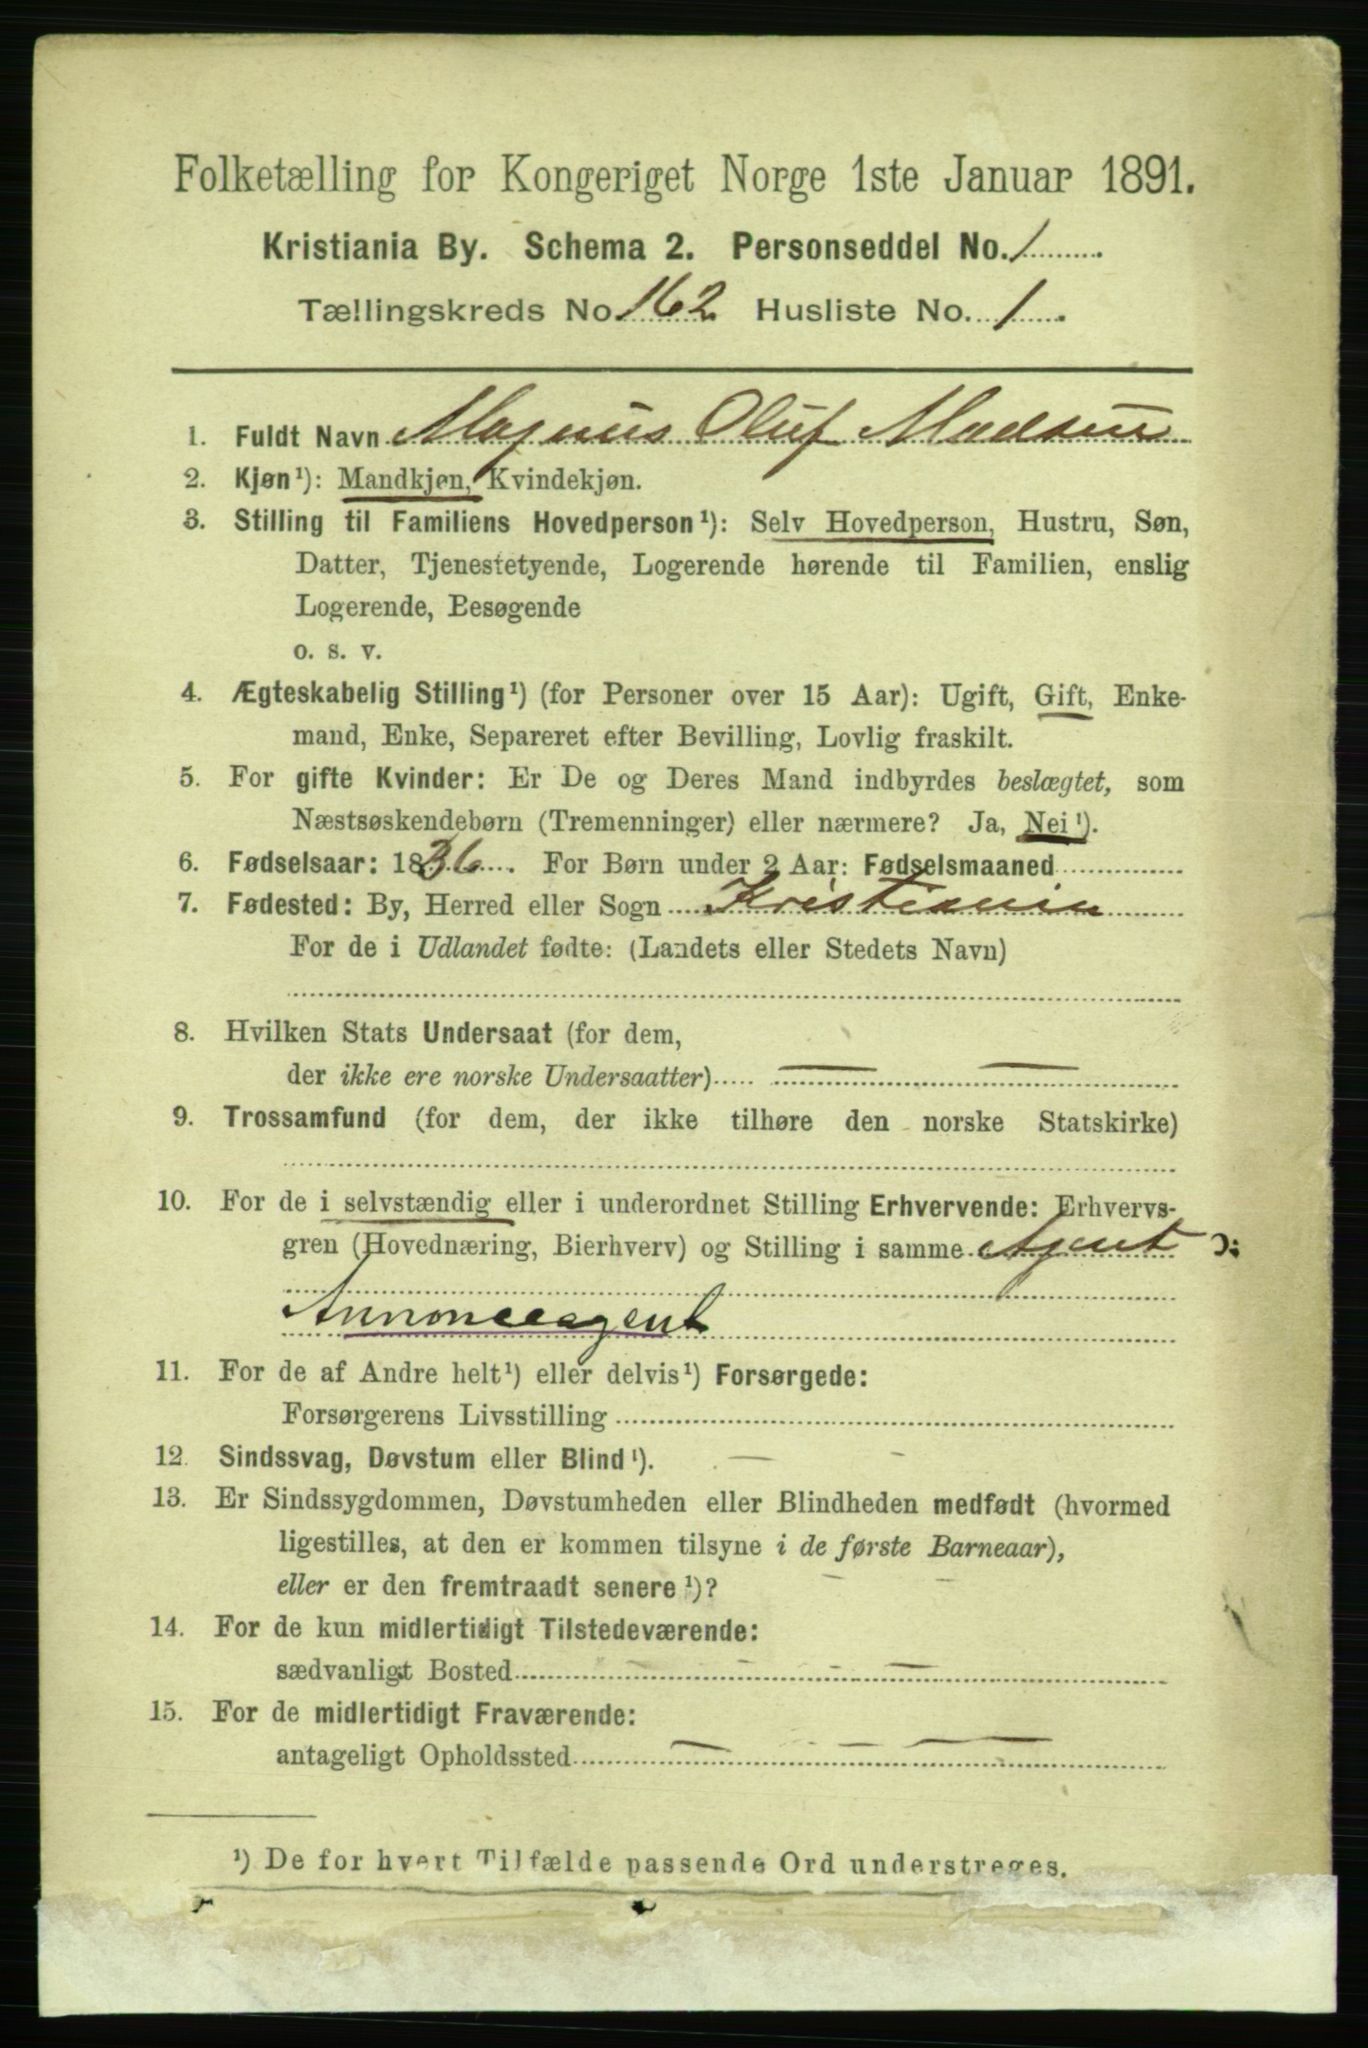 Folketælling for Kongeriget Norge 1ste Januar 1891.
Kristiania By. Schema 2. Personseddel No. 1
Tællingskreds No 162 Husliste No. 1
1. Fuldt Navn Magnus Oluf Madsen
2. Kjøn¹): Mandkjøn, Kvindekjøn.
3. Stilling til Familiens Hovedperson¹): Selv Hovedperson, Hustru, Søn,
Datter, Tjenestetyende, Logerende hørende til Familien, enslig
Logerende, Besøgende
o. s. v.
4. Ægteskabelig Stilling¹) (for Personer over 15 Aar): Ugift, Gift, Enke-
mand, Enke, Separeret efter Bevilling, Lovlig fraskilt.
5. For gifte Kvinder: Er De og Deres Mand indbyrdes beslægtet, som
Næstsøskendebørn (Tremenninger) eller nærmere? Ja, Nei¹).
6. Fødselsaar: 1836. For Børn under 2 Aar: Fødselsmaaned
7. Fødested: By, Herred eller Sogn Kristiania
For de i Udlandet fødte: (Landets eller Stedets Navn)
8. Hvilken Stats Undersaat (for dem,
der ikke ere norske Undersaatter) — —
9. Trossamfund (for dem, der ikke tilhøre den norske Statskirke)
10. For de i selvstændig eller i underordnet Stilling Erhvervende: Erhvervs-
gren (Hovednæring, Bierhverv) og Stilling i samme Agent ɔ:
Annonceagent
11. For de af Andre helt¹) eller delvis¹) Forsørgede:
Forsørgerens Livsstilling
12. Sindssvag, Døvstum eller Blind¹). — –
13. Er Sindssygdommen, Døvstumheden eller Blindheden medfødt (hvormed
ligestilles, at den er kommen tilsyne i de første Barneaar),
eller er den fremtraadt senere¹)? – –
14. For de kun midlertidigt Tilstedeværende:
sædvanligt Bosted – – – —
15. For de midlertidigt Fraværende:
antageligt Opholdssted — – —
¹) De for hvert Tilfælde passende Ord understreges.